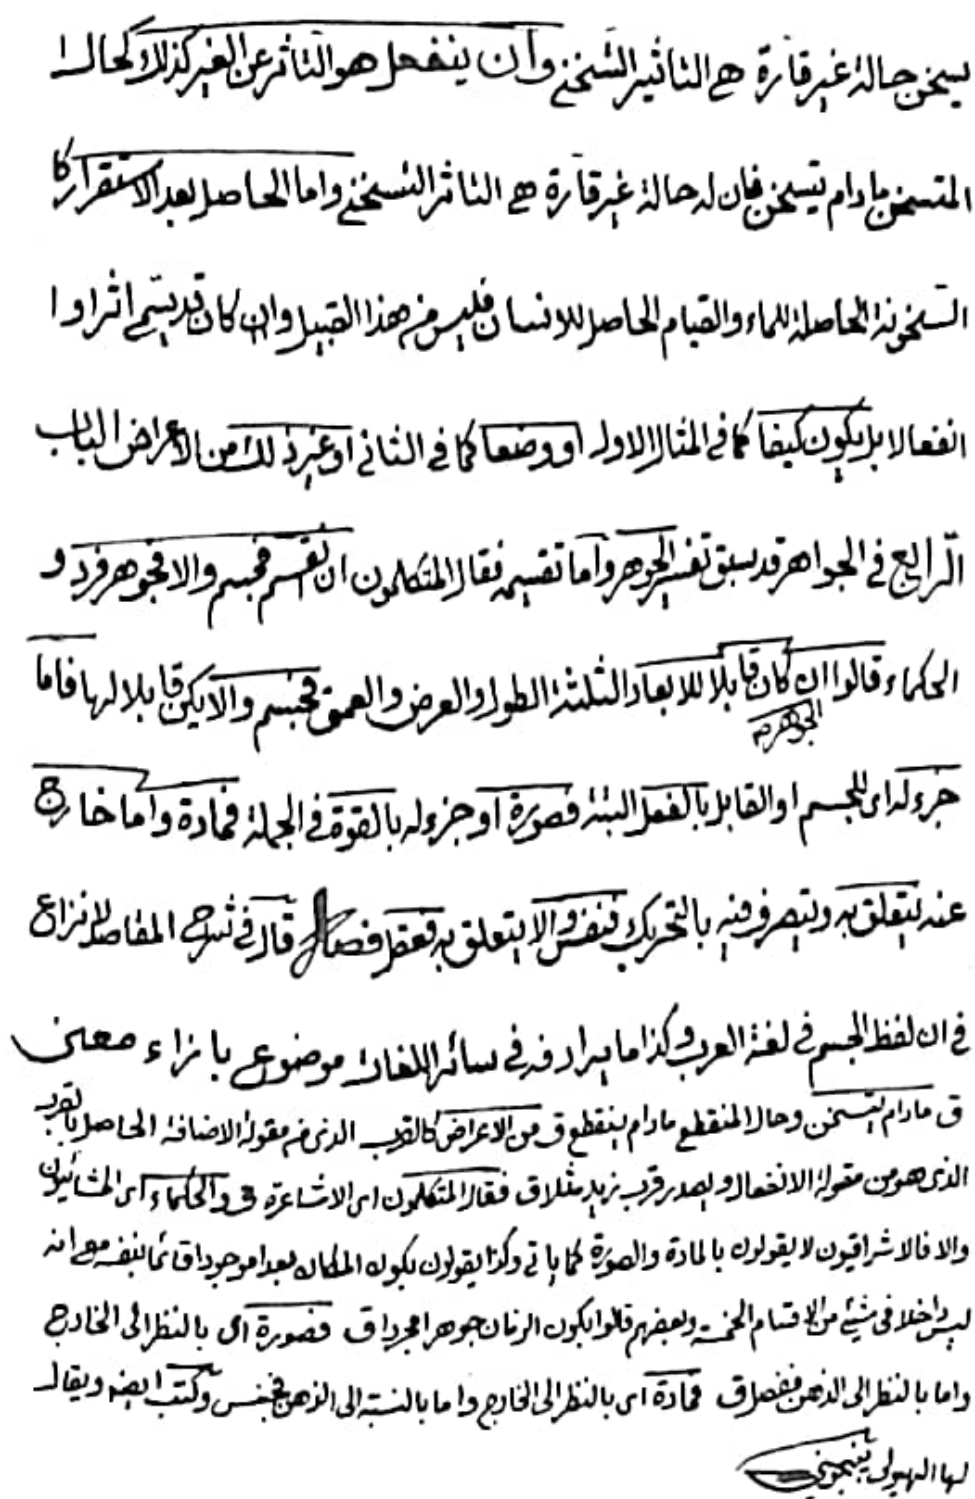 يسخن حالة غير قارة هي التأثير التسخني وأن ينفعل هو التأثر عن الغير كذلك كحال
المتسخن ما دام يتسخن فإن له حالة غير قارة هي التأثر التسخني واما الحاصل بعد الاستقرار كا
السخونة الحاصلة للماء والقيام الحاصل للانسان فليس من هذا القبيل وان كان قد يسمى اثرا و ا
انفعالا بل يكون كيفا كما في المثال الاول او وضعا كما في الثاني او غير ذلك من الاعراض الباب
الرابع في الجواهر قد سبق تفسير الجوهر وأما تقسيمه فقال المتكلمون ان انقسم فجسم والا فجوهر فرد و
الحكماء قالوا ان كان قابلا للابعاد الثلثة الطول والعرض والعمق فجسم والا يكن قابلا لها فاما
الجوهر
جزء له اى للجسم او القابل بالفعل البتة فصورة أو جزء له بالقوة في الجملة فمادة واما خارج
عنه يتعلق به ويتصرف فيه بالتحريك فنفس والا يتعلق به فعقل قال في شرح المقاصد لا نزاع
في ان لفظ الجسم في لغة العرب وكذا ما يرادفه في سائر اللغات موضوع بازاء معنى
ق ما دام يتسخن وحال المنقطع ما دام ينقطع ق من الاعراض كالقرب الذي من مقولة الاضافة الحاصل بالقرب
الذي هو من مقولة الانفعال وبعد قرب زيد مثلا ق فقال المتكلمون اى الاشاعرة ق والحكماء اى المشائيون
والا فالاشراقيون لا يقولون بالمادة والصورة كما يأتي وكذا يقولون بكون المكان بعدا موجودا قائما بنفسه مع انه
ليس داخلا في شيئ من الاقسام الخمسة وبعضهم قالوا بكون الزمان جوهرا مجردا ق فصورة اى بالنظر الى الخارج
واما بالنظر الى الذهن ففصل ق فمادة اى بالنظر الى الخارج واما بالنسبة الى الذهن فجنس وكتب ايضا ويقال
لها الهيولى ينجويني